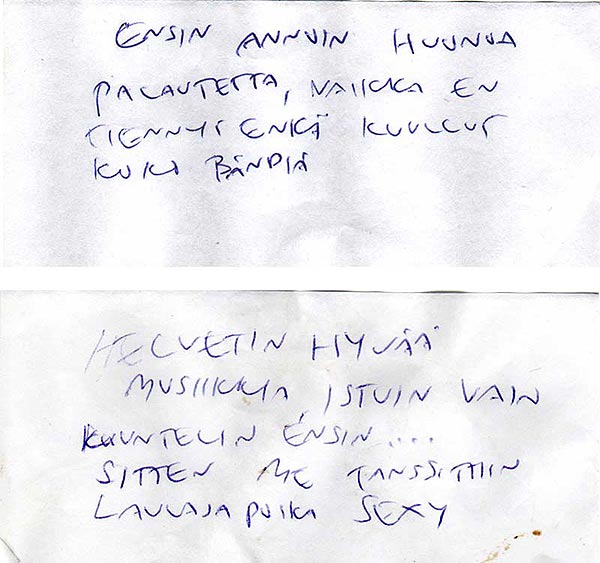 ENSIN ANNOIN HUONOA
PALAUTETTA, VAIKKA EN
TIENNYT ENKÄ KUULLUT
KOKO BÄNDIÄ
HELVETIN HYVÄÄ
MUSIIKKIA, ISTUIN VAIN
KUUNTELIN ENSIN....
SITTEN ME TANSSITTIIN
LAULAJA POIKA SEXY